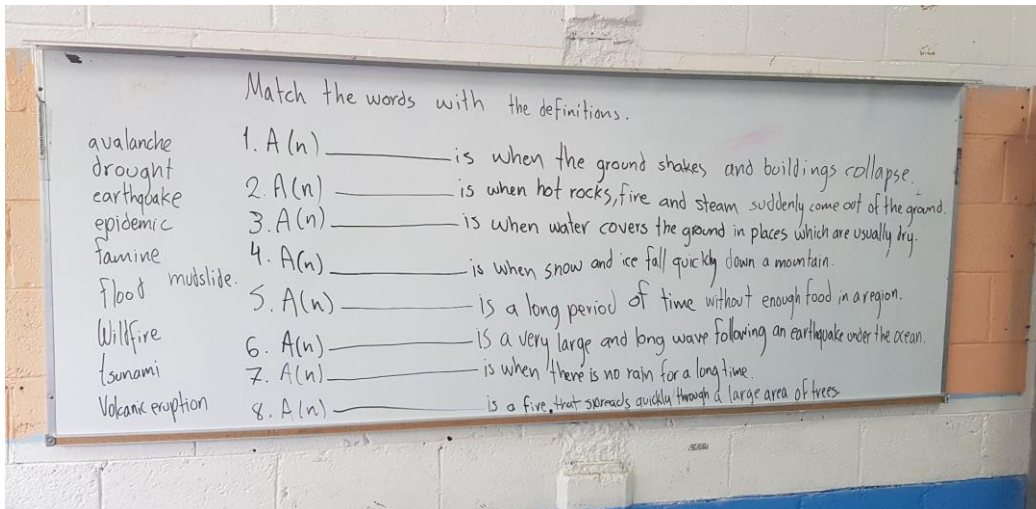 Match the words with the definitions.
avalanche
drought
earthquake
epidemic
famine
flood mudslide.
Wildfire
tsunami
Volcanic eruption
1. A(n) __________ is when the ground shakes and buildings collapse.
2. A(n) __________ is when hot rocks, fire and steam suddenly come out of the ground.
3. A(n) __________ is when water covers the ground in places which are usually dry.
4. A(n) __________ is when snow and ice fall quickly down a mountain.
5. A(n) __________ is a long period of time without enough food in a region.
6. A(n) __________ is a very large and long wave following an earthquake under the ocean.
7. A(n) __________ is when there is no rain for a long time.
8. A(n) __________ is a fire that spreads quickly through a large area of trees